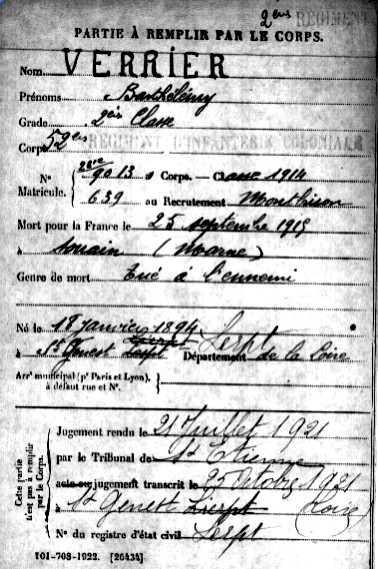 2ème REGIMENT
PARTIE À REMPLIR PAR LE CORPS.
Nom VERRIER
Prénoms Barthélémy
Grade 2è Classe
Corps 52es REGIMENT D'INFANTERIE COLONIALE
N° 9013 au Corps. — Classe 1914
Matricule. 639 au Recrutement Montbrison
Mort pour la France le 25 septembre 1915
à Souain (Marne)
Genre de mort Tué à l'ennemi
Né le 18 janvier 1894
à St Genest Lerpt Département de la Loire
Arrt municipal (pr Paris et Lyon),
à défaut rue et N°.
Cette partie
n'est pas à remplir
par le Corps.
Jugement rendu le 21 Juillet 1921
par le Tribunal de St Etienne
acte ou jugement transcrit le 25 Octobre 1921
à St Genest Lerpt (Loire)
N° du registre d'état civil
101-708-1922. [26434]